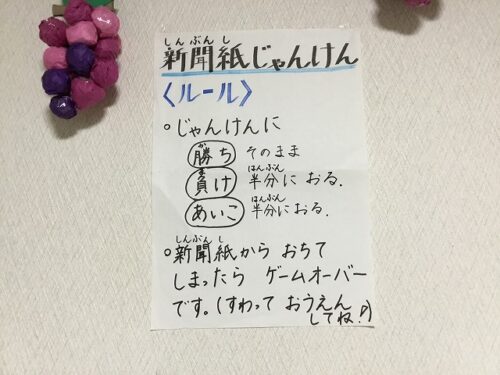 しんぶんし
新聞紙じゃんけん
〈ルール〉
○じゃんけんに
か
勝ち そのまま
ま はんぶん
負け 半分に おる.
はんぶん
あいこ 半分に おる.
しんぶんし
○新聞紙から おちて
しまったら ゲームオーバー
です。(すわって おうえん
してね!!)